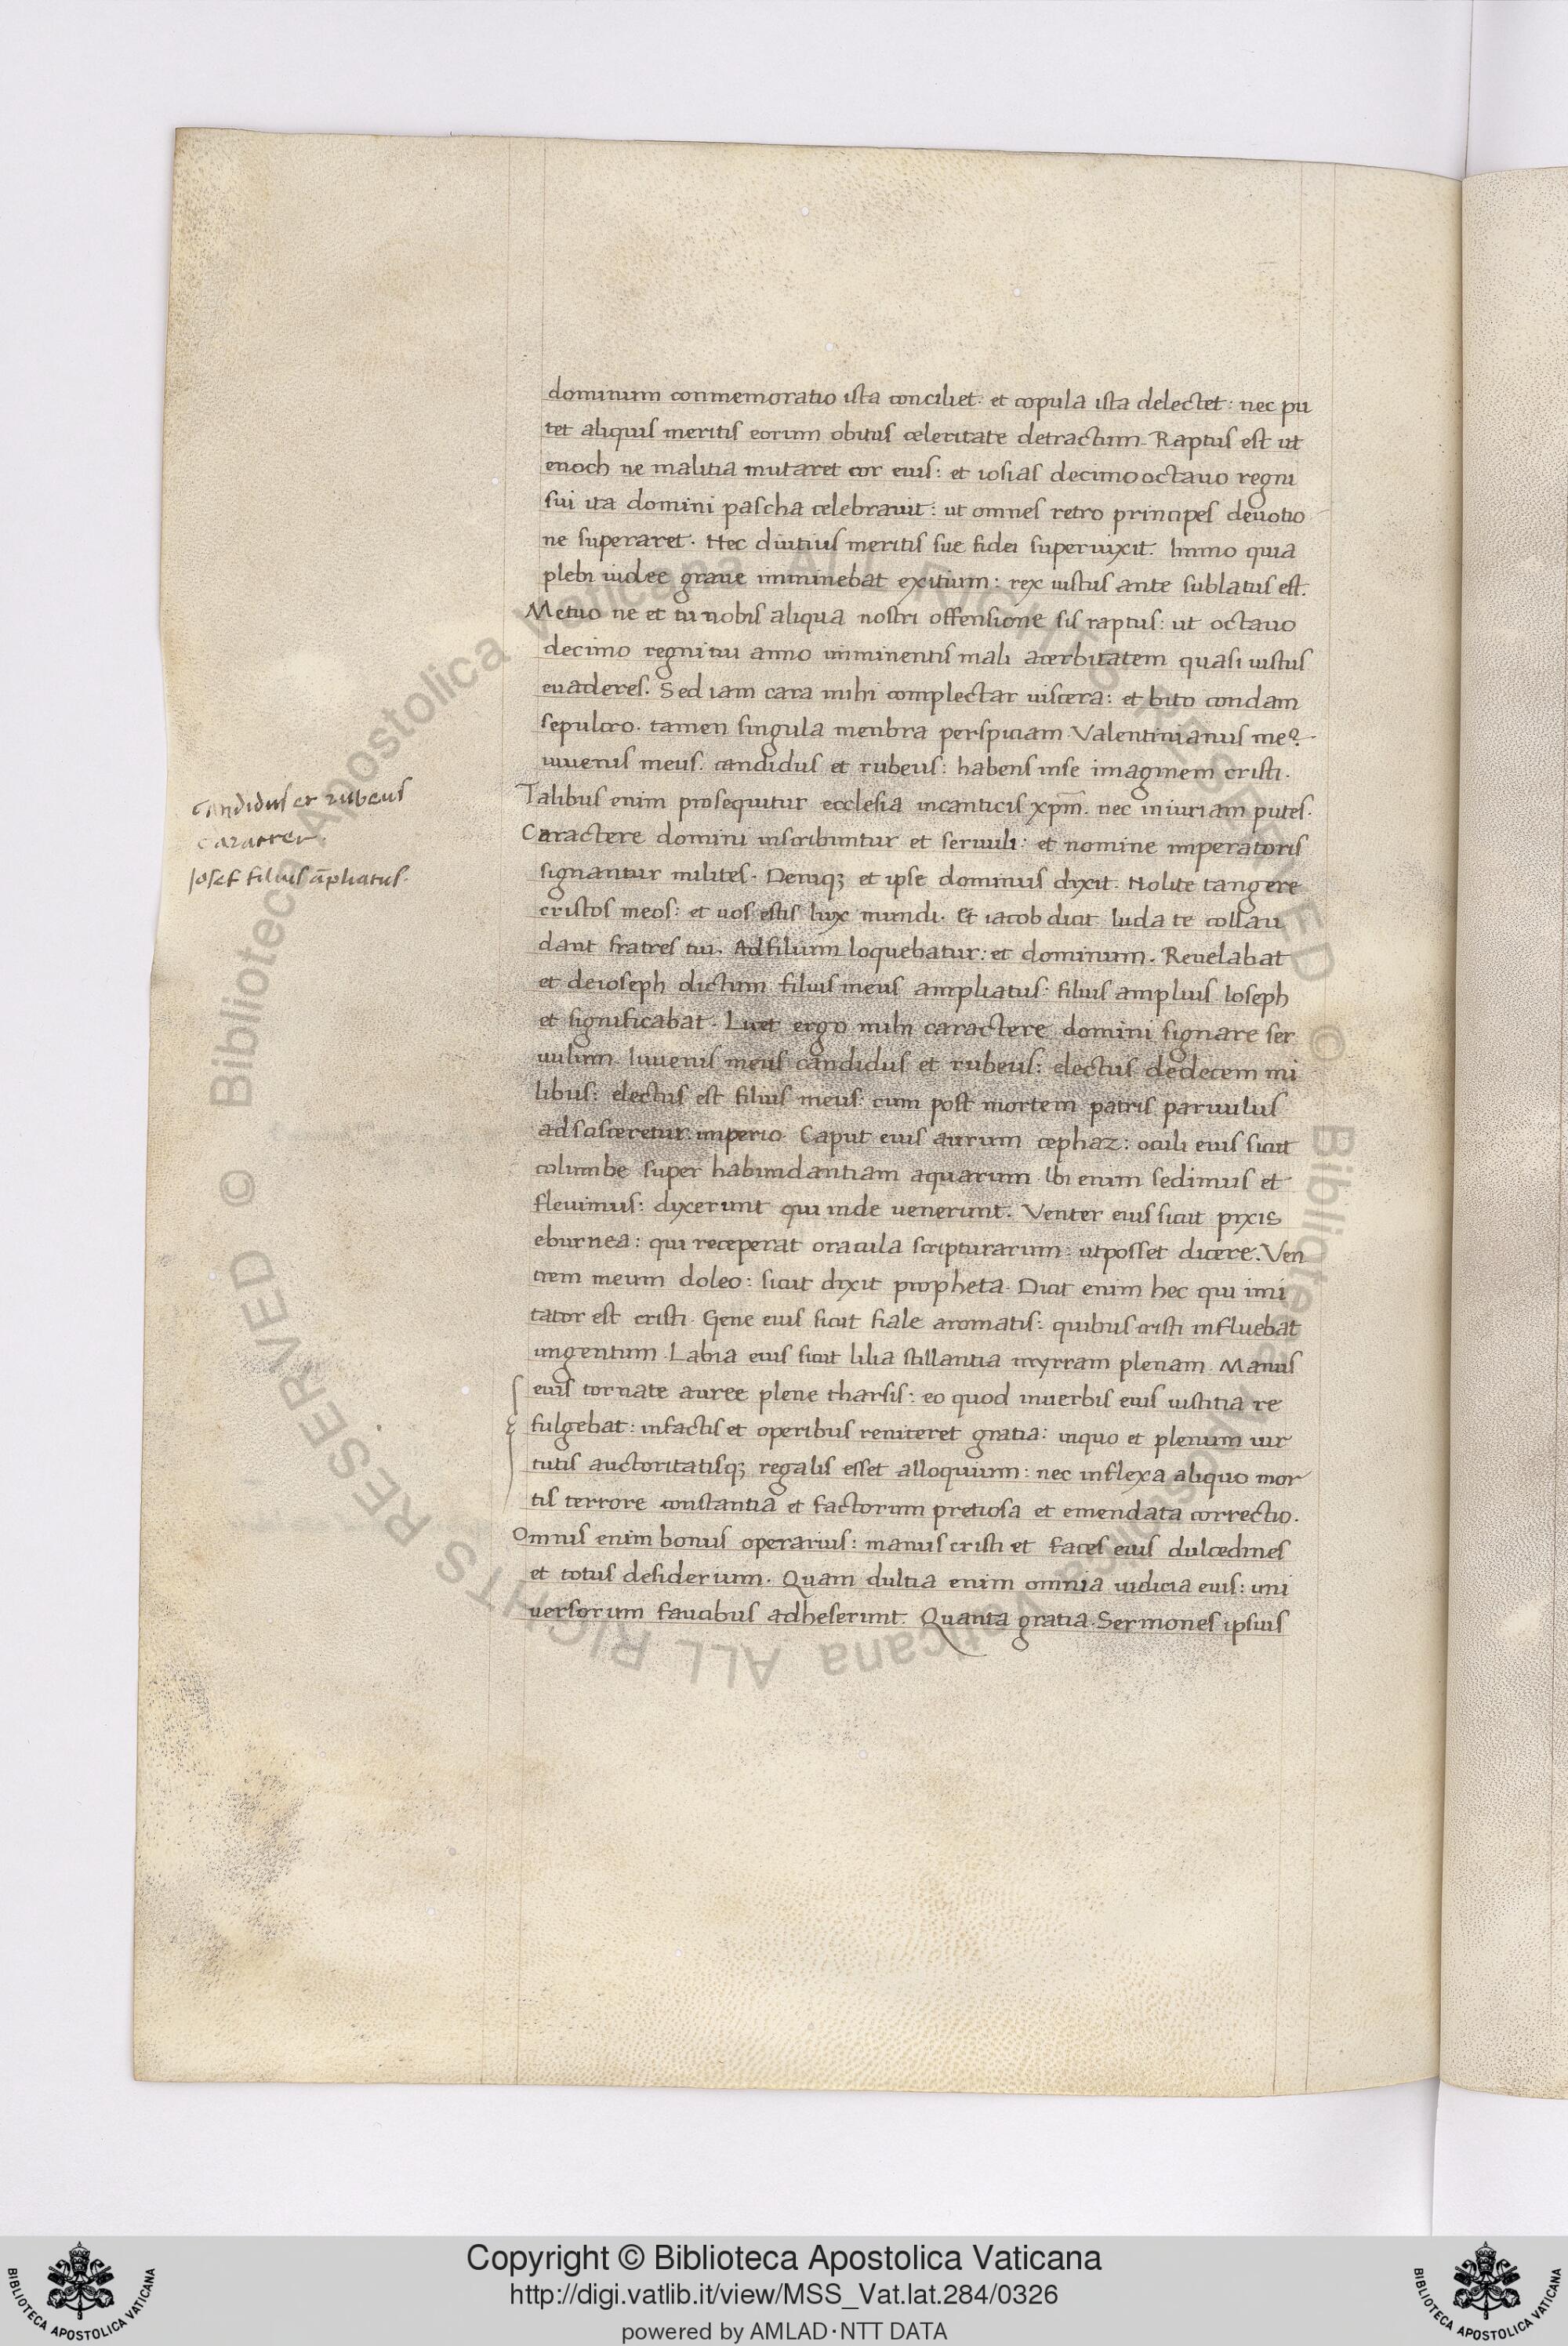 dominum conmemoratio ista conciliet: et copula ista delectet: nec pu
tet aliquis meritis eorum obitus celeritate detractum. Raptus est ut
enoch ne malitia mutaret cor eius: et iosias decimo octauo regni
sui ita domini pascha celebrauit: ut omnes retro principes deuotio
ne superaret. Nec diutius meritis sue fidei superuixit. Immo quia
plebi iudee graue imminebat exitium: rex iustus ante sublatus est.
Metuo ne et tu nobis aliqua nostri offensione sis raptus: ut octauo
decimo regni tui anno imminentis mali acerbitatem quasi iustus
euaderes. Sed iam cara mihi complectar uiscera: et bito condam
sepulcro. tamen singula menbra perspiciam. Valentinianus me
iuuenis meus. candidus et rubeus: habens inse imaginem cristi.
Talibus enim prosequitur ecclesia incanticis xpm̅. nec iniuriam putes.
Caractere domini inscribuntur et seruuli: et nomine imperatoris
signantur milites. Deniqꝫ et ipse dominus dixit. Nolite tangere
cristos meos: et uos estis lux mundi. Et iacob dicit Iuda te collau
dant fratres tui. Ad filium loquebatur: et dominum. Reuelabat
et deioseph dictum filius meus ampliatus: filius amplius Ioseph
et significabat. Licet ergo mihi caractere domini signare ser
uulum. Iuuenis meus candidus et rubeus: electus dedecem mi
libus: electus est filius meus: cum post mortem patris paruulus
adscisceretur imperio. Caput eius aurum cephaz: oculi eius sicut
columbe super habundantiam aquarum. Ibi enim sedimus et
fleuimus: dixerunt qui inde uenerunt. Venter eius sicut pixis
eburnea: qui receperat oracula scripturarum: utposset dicere. Ven
trem meum doleo: sicut dixit propheta. Dicit enim hec qui imi
tator est cristi. Gene eius sicut fiale aromatis: quibus cristi influebat
ungentum. Labia eius sicut lilia stillantia myrram plenam. Manus
eius tornate auree plene tharsis: eo quod inuerbis eius iustitia re
fulgebat: infactis et operibus reniteret gratia: inquo et plenum uir
tutis auctoritatisqꝫ regalis esset alloquium: nec inflexa aliquo mor
tis terrore constantia et factorum pretiosa et emendata correctio.
Omnis enim bonus operarius: manus cristi et faces eius dulcedines
et totus desiderium. Quam dultia enim omnia iudicia eius: uni
uersorum faucibus adheserunt. Quanta gratia. Sermones ipsius
candidus et rubeus
caracter
Josef filius āpliatus.
© Biblioteca Apostolica Vaticana ALL RIGHTS RESERVED © Biblioteca Apostolica Vaticana ALL RIGHTS RESERVED
Copyright © Biblioteca Apostolica Vaticana
http://digi.vatlib.it/view/MSS_Vat.lat.284/0326
powered by AMLAD·NTT DATA
BIBLIOTECA APOSTOLICA VATICANA
BIBLIOTECA APOSTOLICA VATICANA